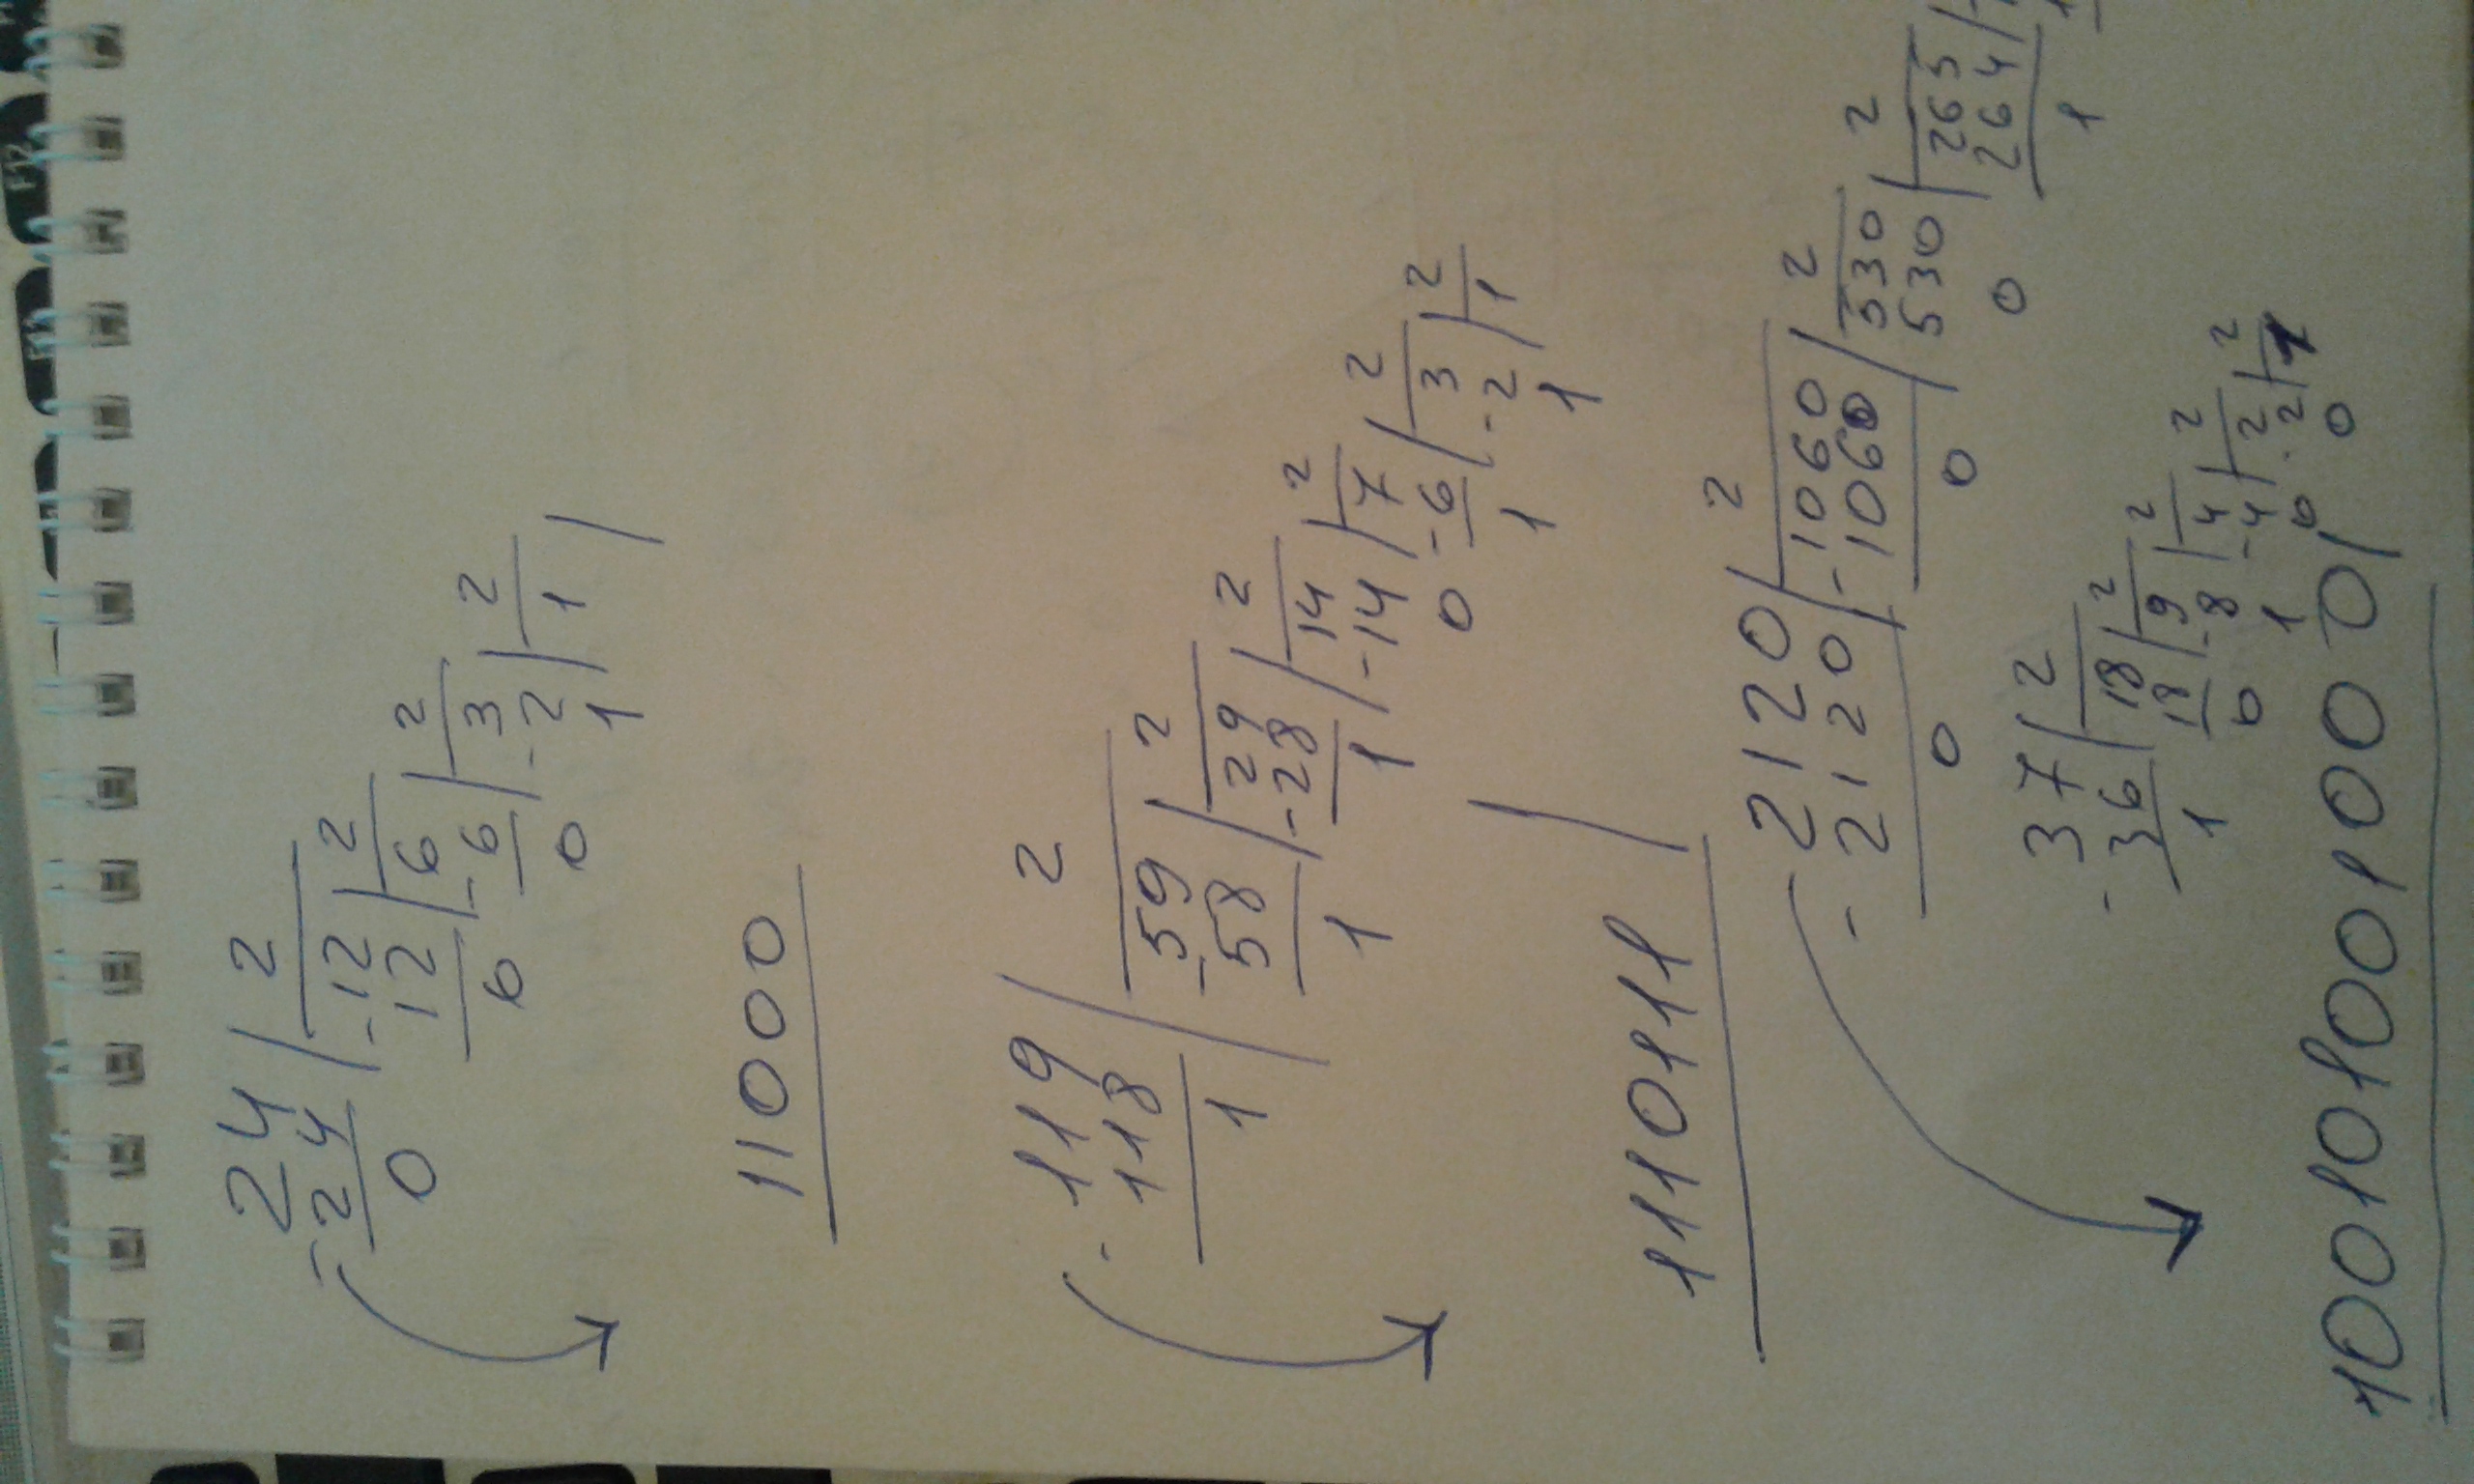 24 | 2
- 24 | - 12 | 2
0 12 | 6 | 2
0 - 6 | 3 | 2
0 - 2 | 1
1
11000
119 | 2
- 118 | 59 | 2
1 - 58 | 29 | 2
1 - 28 | 14 | 2
1 - 14 | 7 | 2
0 - 6 | 3 | 2
1 - 2 | 1
1
1110111
2120 | 2
- 2120 | 1060 | 2
0 - 1060 | 530 | 2
0 530 | 265 | 2
0 264
1
37 | 2
- 36 | 18 | 2
1 18 | 9 | 2
0 - 8 | 4 | 2
1 - 4 | 2 | 2
0 - 2 | 1
0
100101001000
F12